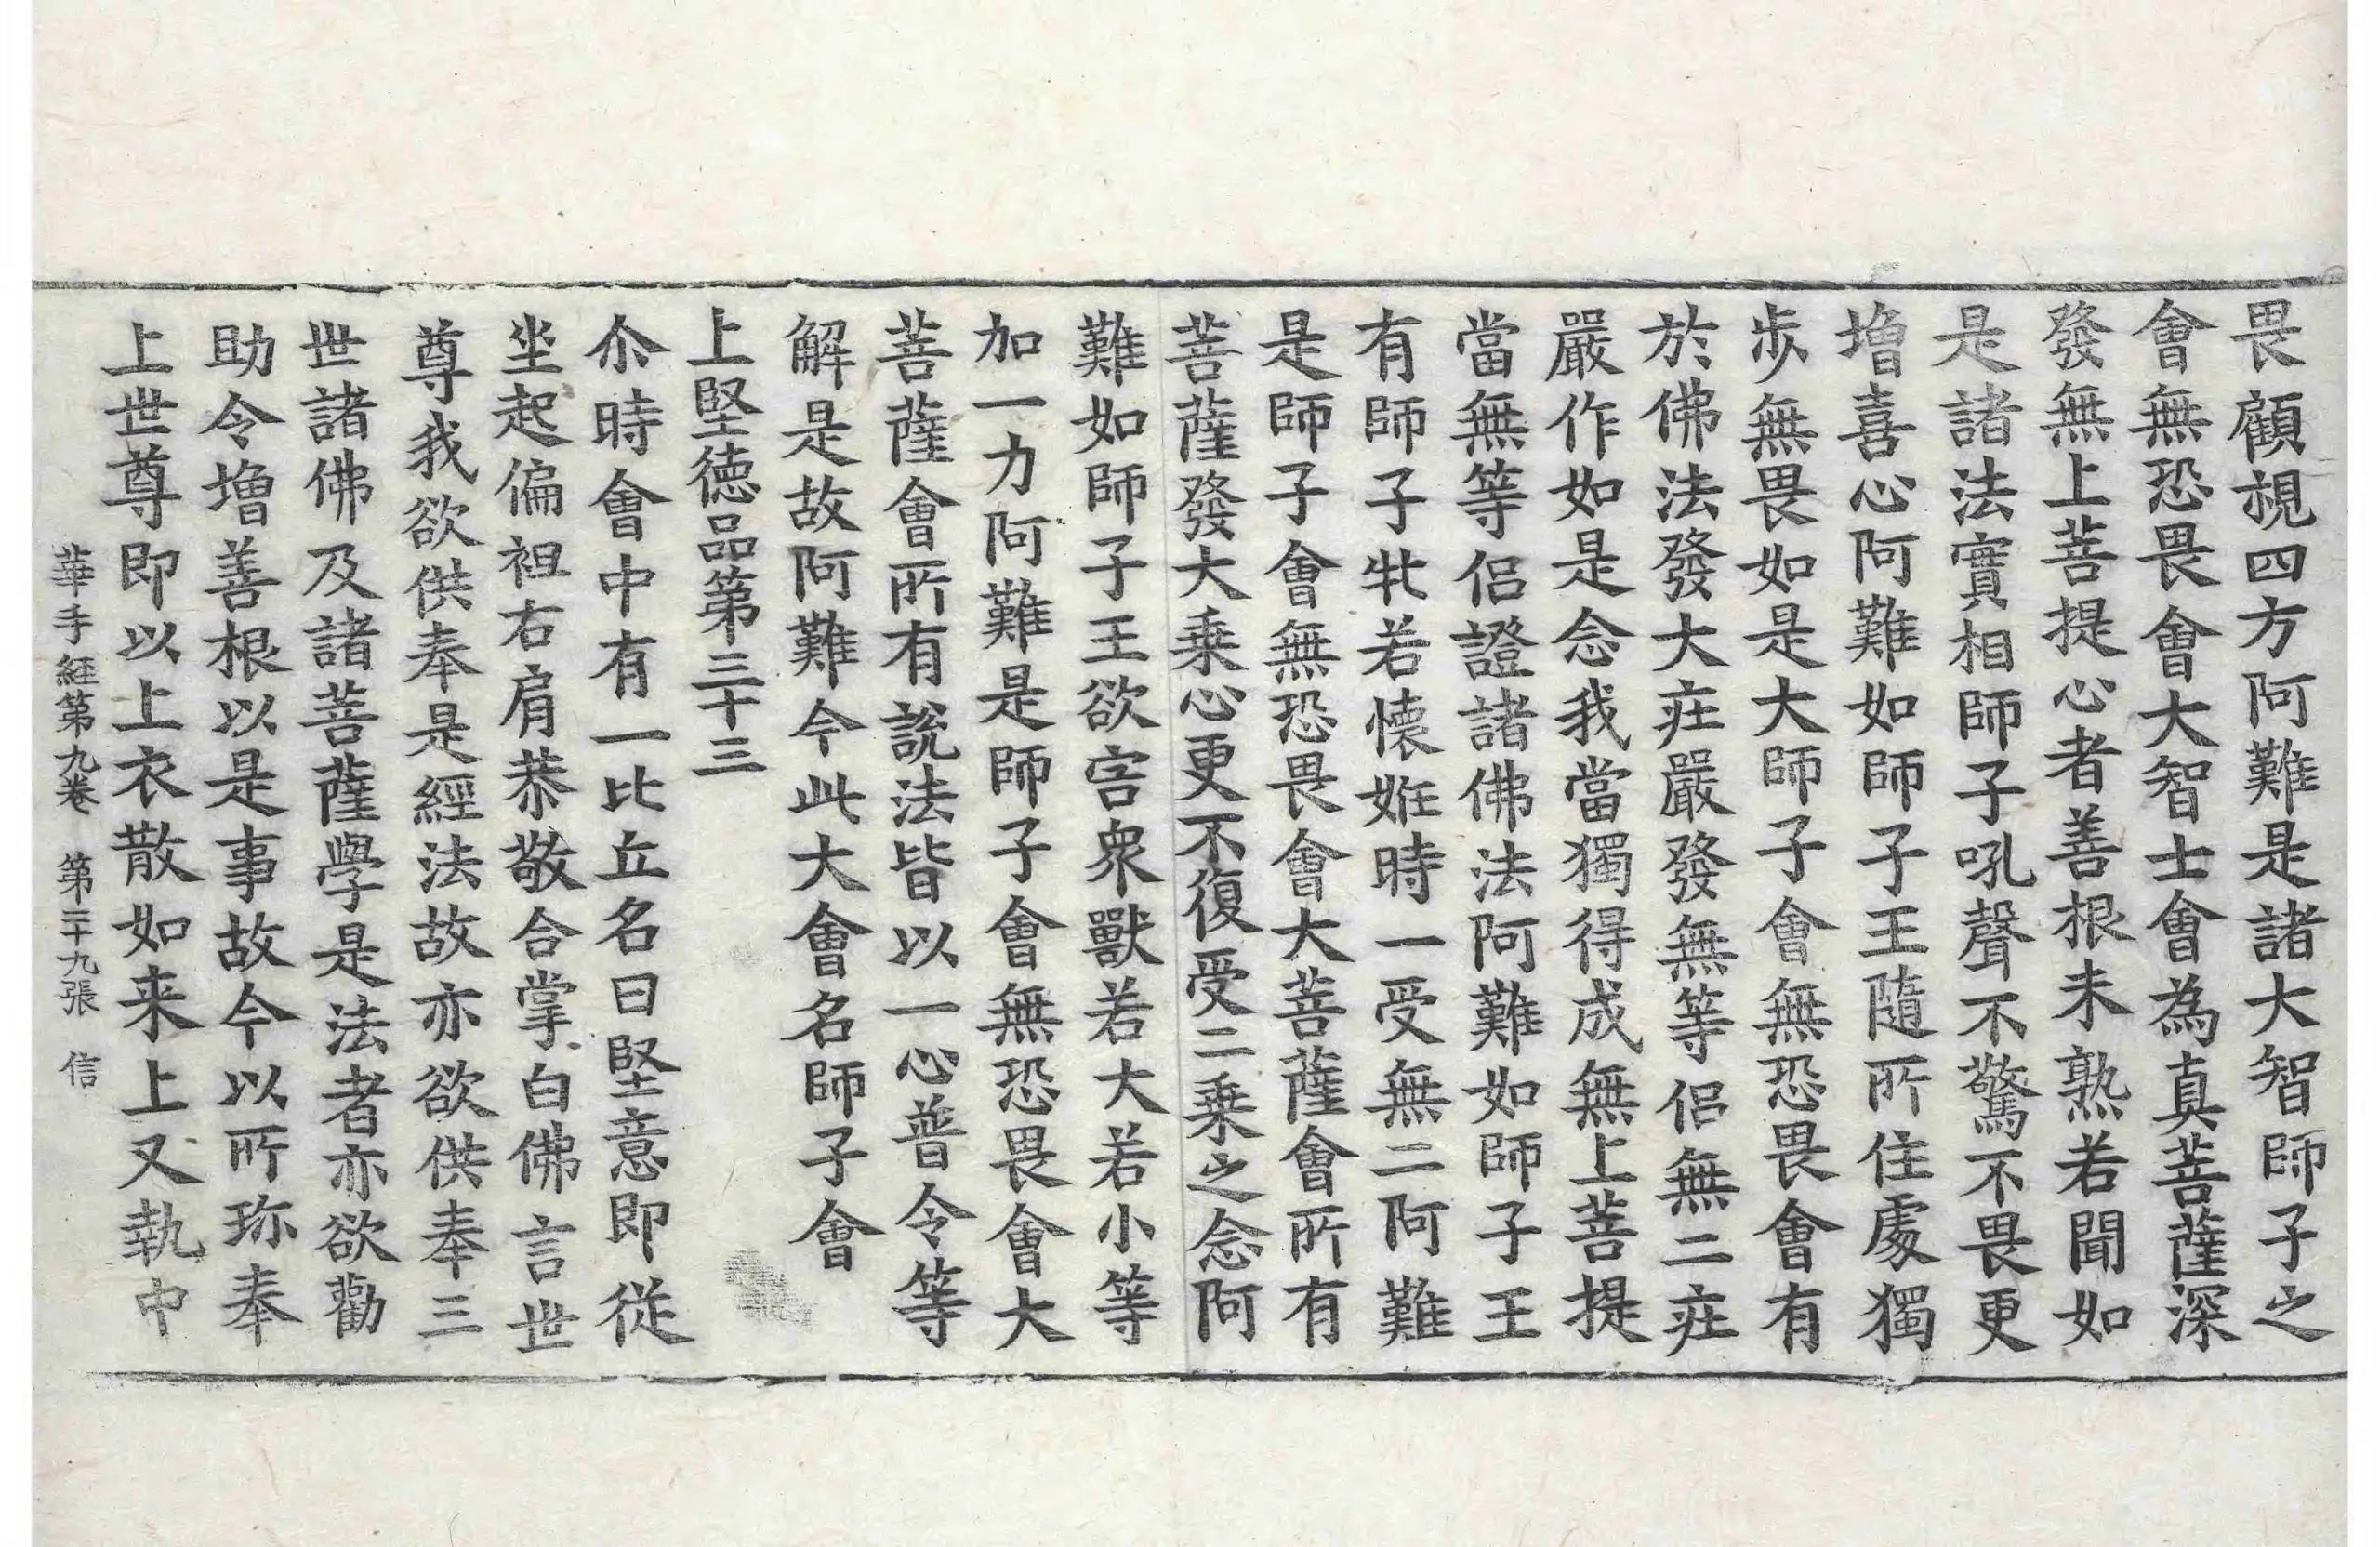 畏顧視四方阿難是諸大智師子之
會無恐畏會大智士會為真菩薩深
發無上菩提心者善根未熟若聞如
是諸法實相師子吼聲不驚不畏更
增喜心阿難如師子王隨所住處獨
步無畏如是大師子會無恐畏會有
於佛法發大莊嚴發無等侣無二莊
嚴作如是念我當獨得成無上菩提
當無等侣證諸佛法阿難如師子王
有師子牝若懷姙時一受無二阿難
是師子會無恐畏會大菩薩會所有
菩薩發大乗心更不復受二乗之念阿
難如師子王欲害衆獸若大若小等
加一力阿難是師子會無恐畏會大
菩薩會所有說法皆以一心普令等
解是故阿難今此大會名師子會
上堅徳品第三十三
尒時會中有一比丘名曰堅意即從
坐起偏袒右肩恭敬合掌白佛言世
尊我欲供奉是經法故亦欲供奉三
世諸佛及諸菩薩學是法者亦欲勸
助令增善根以是事故今以所珎奉
上世尊即以上衣散如来上又執中
華手經第九卷　第二十九張　信